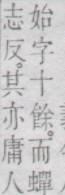 始字十餘。而蟬
志反。其亦庸人